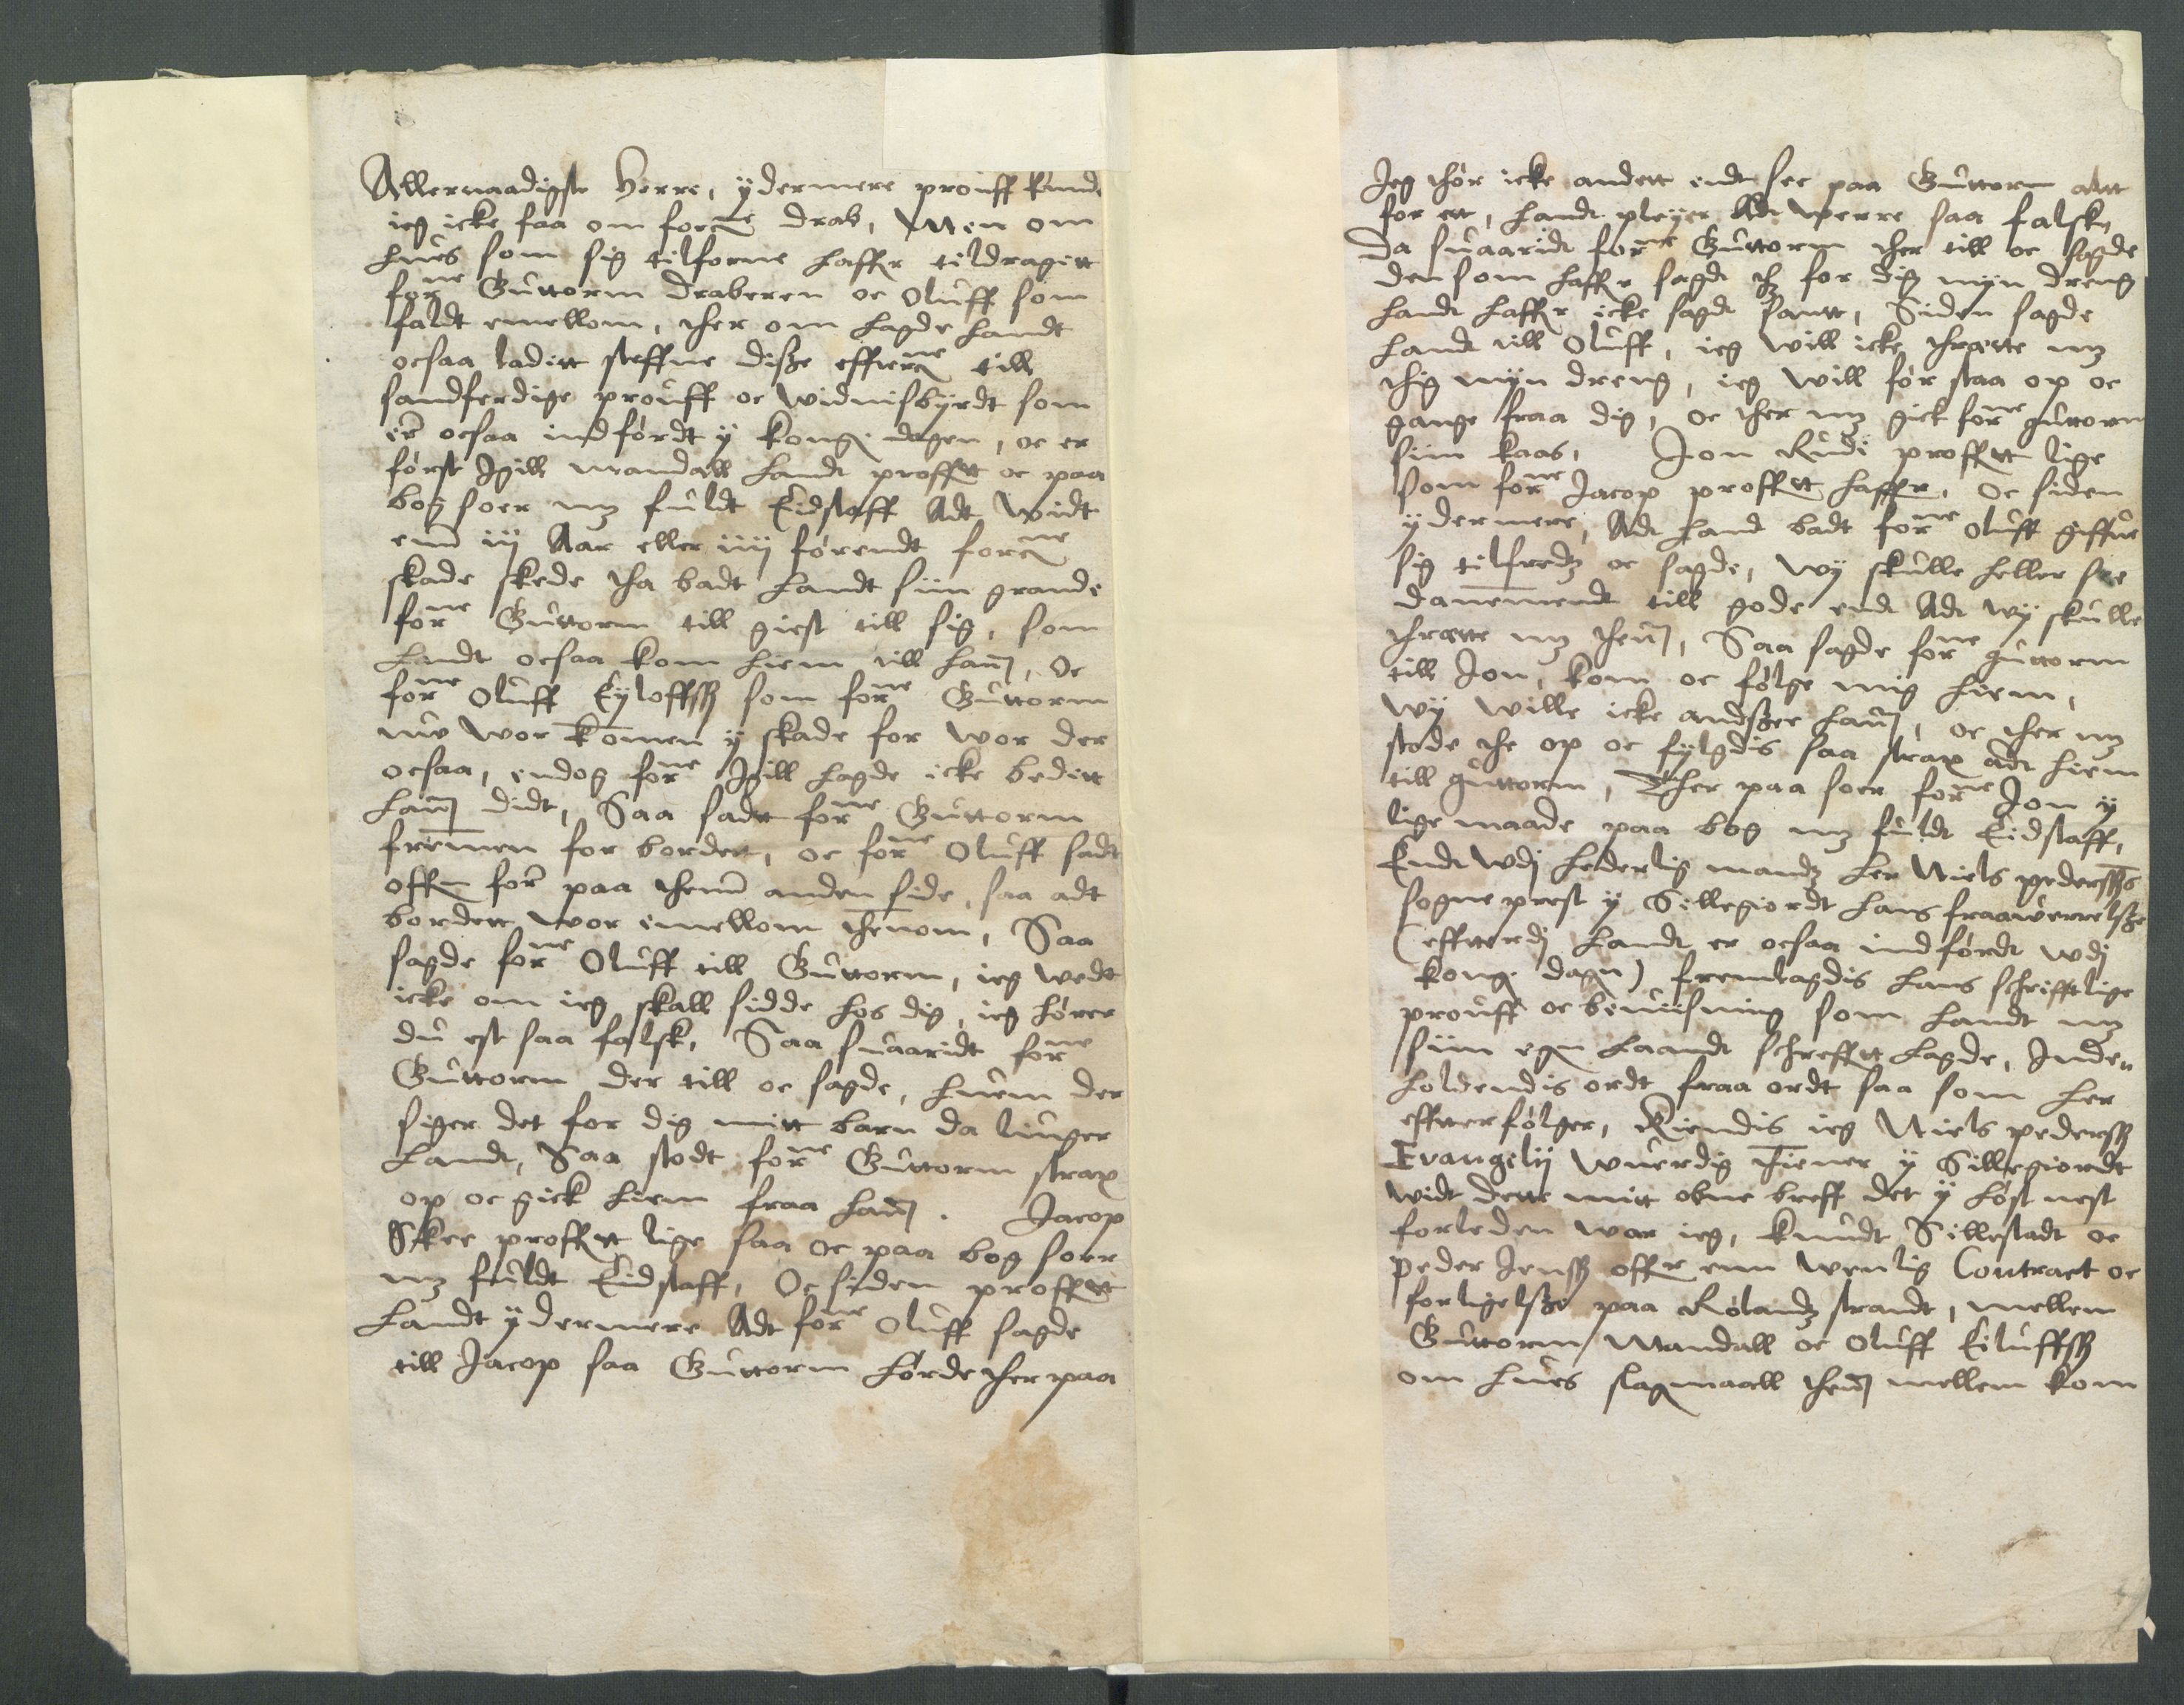 Allernaadigste Herre, ÿdermere prouff kunde
ieg icke faa om forne drab, Men om
hues som sig tilforne haffr tildragitt
forne Guttorm draberen oc Oluff som
faldt emellom, ther om hagde handt
ocsaa laditt steffne disse effterne till
sandferdige prouff oc widnisbÿrdt som
er ocsaa indfördt ÿ kong: dagen, oc er
först Igill Mandall handt proffett oc paa
bog soer mz fuldt Eidstaff Adt widt
enn iij Aar eller iiij förendt forne
skade skede tha badt handt siin grande
forne Guttorm till giest till sig, som
handt ocsaa kom hiem till hannom, Oc
forne Oluff Eÿloffssz som forne Guttorm
nu wor kommen ÿ skade for wor der
ocsaa, endog forne Igill hagde icke beditt
hannom didt, Saa sadt forne Guttorm
fremmen for bordett, oc forne Oluff sadt
offuen for paa thenn anden side, saa adt
bordett wor emellom thennom, Saa
sagde forne Oluff till Guttorm, ieg wedt
icke om ieg skall sidde hos dig, ieg hörer
du est saa falsk, Saa suaaridt forne
Guttorm der till oc sagde, huem der
siger det for dig mitt barn da liuger
handt, Saa stodt forne Guttorm strax
op oc gick hiem fraa hannom. Jacop
Skee proffett lige saa oc paa bog soer
mz fuldt Eidstaff, Oc siden proffett
handt ÿdermere Adt forne Oluff sagde
till Jacop saa Guttorm hörde ther paa
Jeg thör icke andett endt see paa Guttorm altt
for ett, handt pleÿer Adt werre saa falsk,
Da suaaridt forne Guttorm ther till oc sagde
den som haffr sagdt thz for dig mÿn dreng
handt haffr icke sagdt santt, Siden sagde
handt till Oluff, ieg will icke thrætte mz
thig mÿn dreng, ieg will för staa op oc
gange fraa dig, oc ther mz gick forne guttorm
siin kaas, Jon Rudi proffett lige
som forne Jacop proffett haffr, Oc siden
ÿdermere, Adt hand badt forne Oluff giffue
sig tilfredz oc sagde, wÿ skulle heller see
dannemendt till gode endt Adt wÿ skulle
thrætte mz thennom, Saa sagde forne guttorm
till Jon, kom oc fölge mig hiem,
wÿ wille icke andsee hannom, oc ther mz
stode the op oc fÿlgdis saa strax adt hiem
till guttorm, Ther paa soer forne Jon ÿ
lige maade paa bog mz fuldt Eidstaff,
Endt wdj hederlig mandz her Niels pederssøns
sogneprest ÿ Sillegiordt hans fraawerrelsse
(effterdj handt er ocsaa indfördt wdj
kong: dagen) fremlagdis hans schrifftlige
prouff oc beuiisning som handt mz
siin egen haandt schreffuett hagde, Inden
holdendis ordt fraa ordt saa som her
effterfölger, Kiendis ieg Niels pederssz
Evangelij wuerdig thiener ÿ Sillegiordt
widt dette mitt obne breff det ÿ höst nest
forleden war ieg, knudt Sillestadt oc
peder Jenssz offuer enn wenlig Contract oc
forligelsse paa Rolandz strandt, mellem
Guttorm Mandall oc Oluff Eiluffssz
om hues slagmaall thennom mellem kom